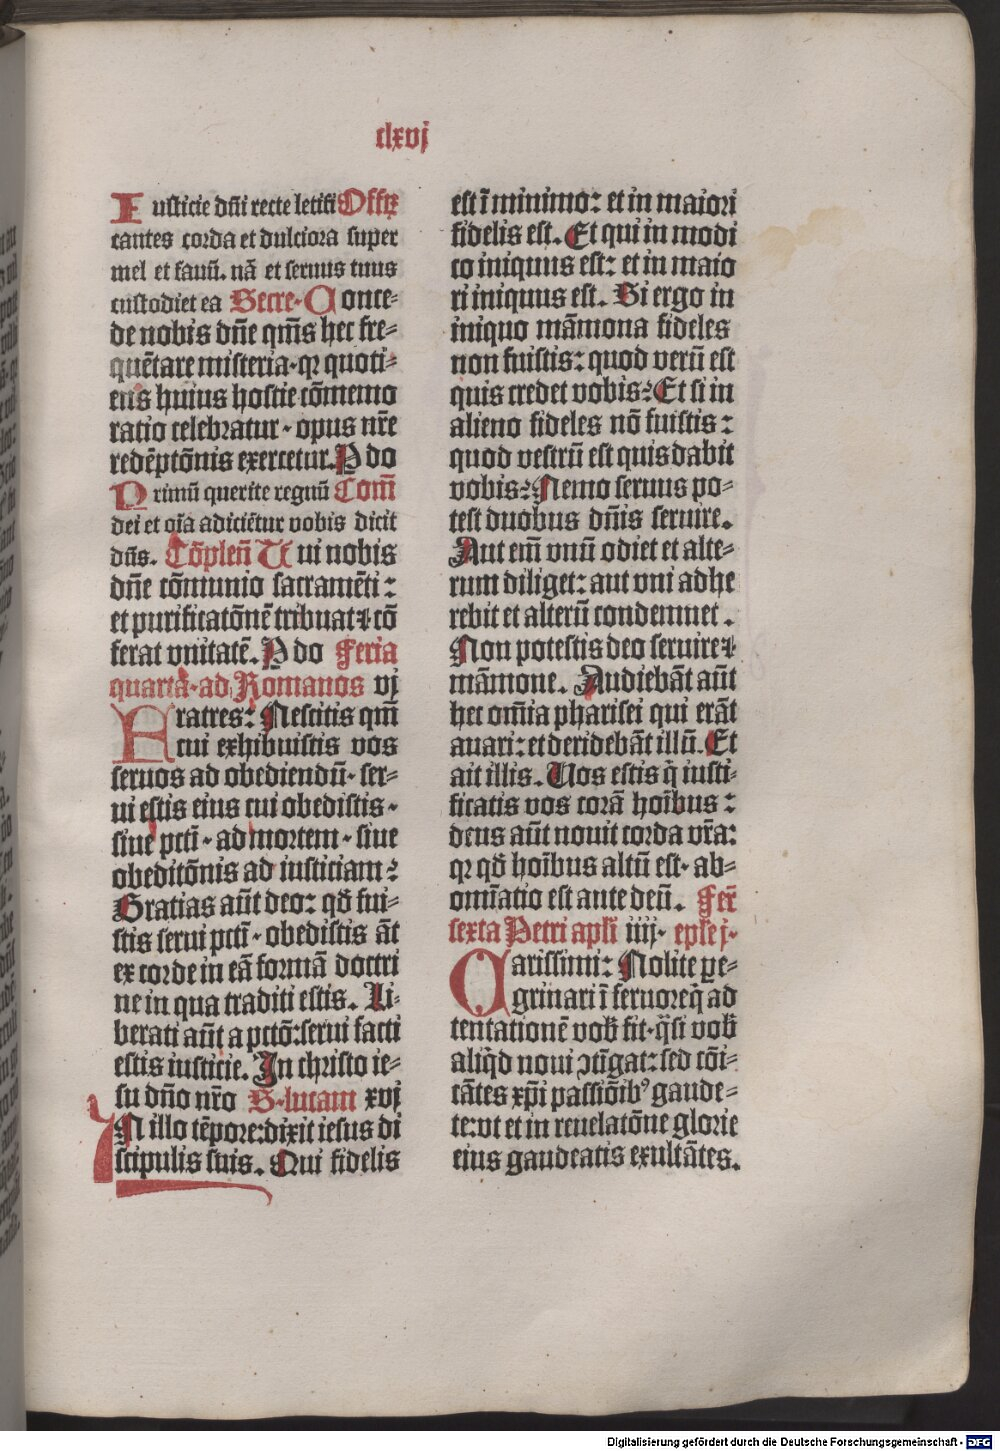 clxvj
Iusticie dñi recte letifi Offꝝ
cantes corda et dulciora super
mel et fauũ. nã et seruus tuus
custodiet ea Secre. Conce⸗
de nobis dñe qm̃s hec fre⸗
quẽtare misteria. qꝛ quoti⸗
ens huius hostie cõmemo
ratio celebratur. opus nr̃e
redẽptõnis exercetur. P do
Primũ querite regnũ Com̃
dei et oĩa adiciẽtur vobis dicit
dñs. Cõplẽũ Tui nobis
dñe cõmunio sacramẽti:
et purificatõnẽ tribuat ⁊ cõ
ferat vnitatẽ. P do Feria
quarta. ad Romanos vj
Fratres: Nescitis qm̃
cui exhibuistis vos
seruos ad obediendũ. ser⸗
ui estis eius cui obedistis.
siue pcti̅. ad mortem. siue
obeditõnis ad iusticiam?
Gratias aũt deo: qđ fui⸗
stis serui pcti̅. obedistis ãt
ex corde in eã formã doctri
ne in qua traditi estis. Li⸗
berati aũt a pctõ: serui facti
estis iusticie. In christo ie⸗
su dño nr̃o S. lucam xvj
IN illo tẽpore: dixit iesus di
scipulis suis. Qui fidelis
est ĩ minimo: et in maiori
fidelis est. Et qui in modi
co iniquus est: et in maio
ri iniquus est. Si ergo in
iniquo mãmona fideles
non fuistis: quod verũ est
quis credet vobis? Et si in
alieno fideles nõ fuistis:
quod vestrũ est quis dabit
vobis? Nemo seruus po⸗
test duobus dñis seruire.
Aut em̃ vnũ odiet et alte⸗
rum diliget: aut vni adhe
rebit et alterũ condemnet.
Non potestis deo seruire ⁊
mãmone. Audiebãt aũt
hec om̃ia pharisei qui erãt
auari: et deridebãt illũ. Et
ait illis. Uos estis q̃ iusti⸗
ficatis vos corã hoĩbus:
deus aũt nouit corda vr̃a:
qꝛ qđ hoĩbus altũ est. ab⸗
omĩatio est ante deũ. Fer̃
sexta Petri apłi iiij. epłe j.
Carissimi: Nolite ꝑe⸗
grinari ĩ feruore q̃ ad
tentationẽ vob̃ fit. q̃si vob̃
aliq̃d noui ↄtĩgat: sed cõi⸗
cãtes xp̃i passiõibꝰ gaude⸗
te: vt et in reuelatõne glorie
eius gaudeatis exultãtes.
Digitalisierung gefördert durch die Deutsche Forschungsgemeinschaft - DFG